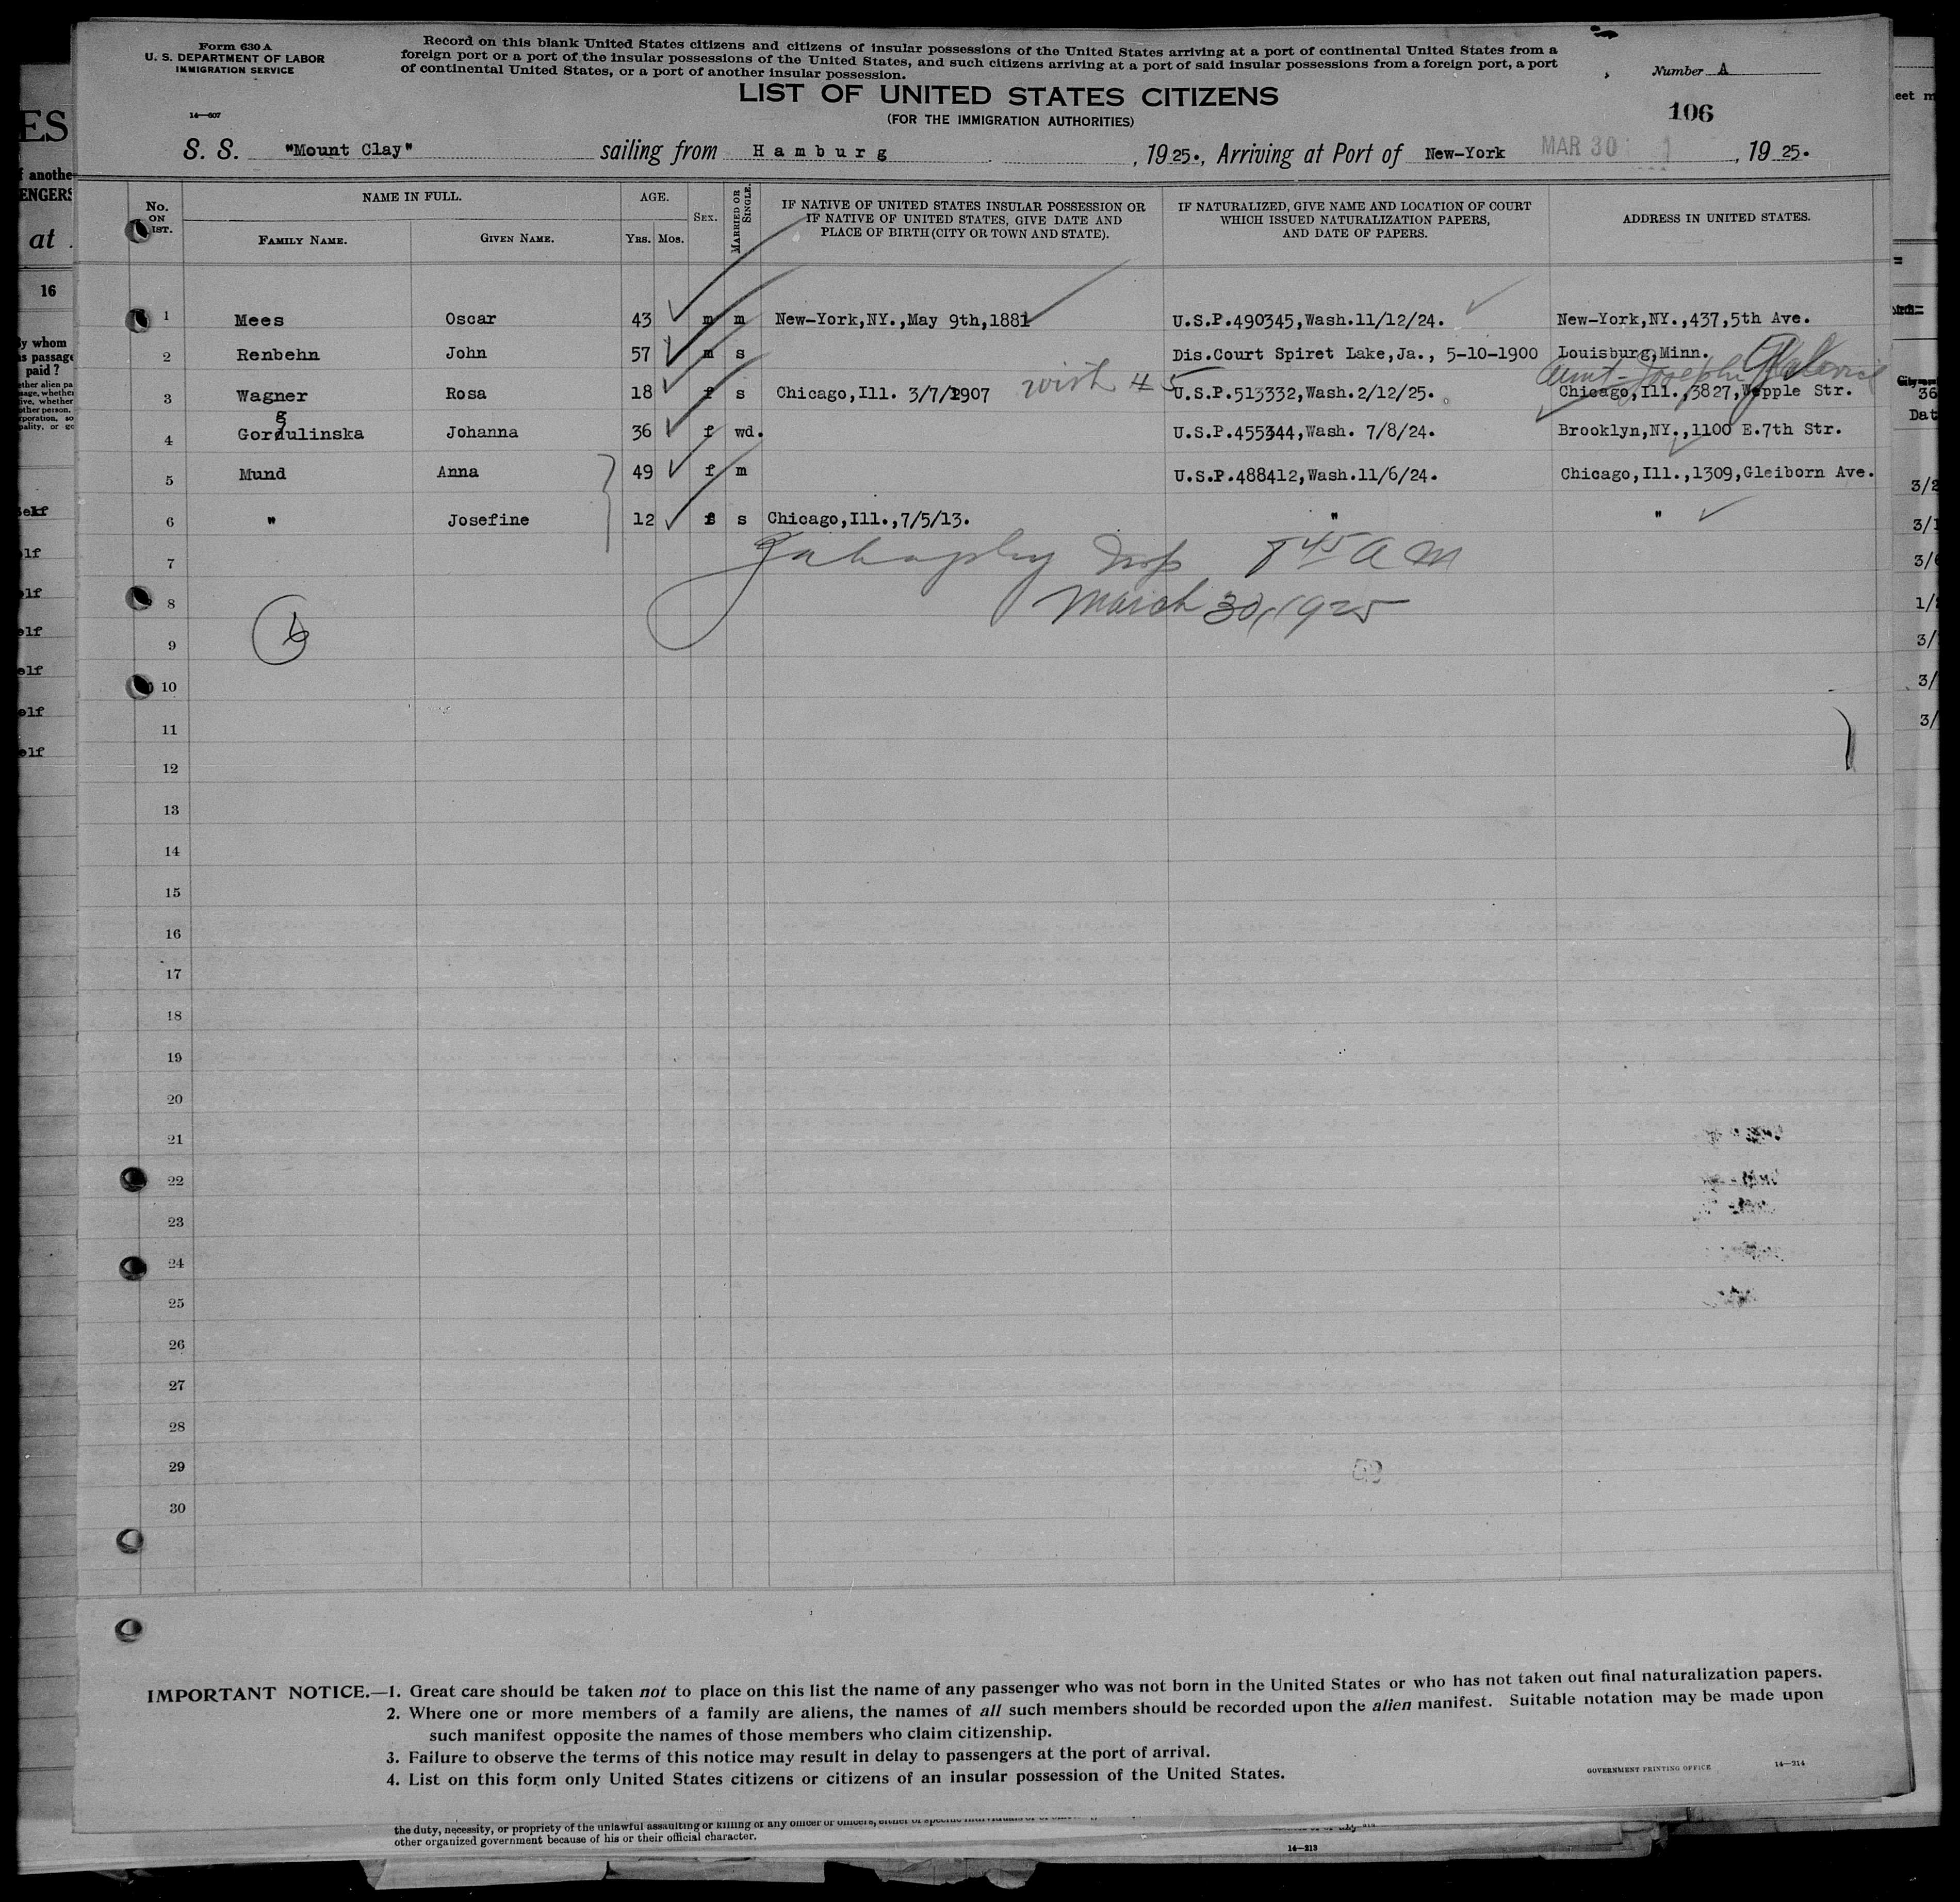 Form 630 A
U. S. DEPARTMENT OF LABOR
IMMIGRATION SERVICE
14—607
Record on this blank United States citizens and citizens of insular possessions of the United States arriving at a port of continental United States from a
foreign port or a port of the insular possessions of the United States, and such citizens arriving at a port of said insular possessions from a foreign port, a port
of continental United States, or a port of another insular possession.
Number A
LIST OF UNITED STATES CITIZENS
(FOR THE IMMIGRATION AUTHORITIES)
106
S. S. "Mount Clay" sailing from Hamburg, 1925., Arriving at Port of New-York MAR 30, 1925.
No. ON LIST. NAME IN FULL. FAMILY NAME. GIVEN NAME. AGE. YRS. MOS. SEX. MARRIED OR SINGLE. IF NATIVE OF UNITED STATES INSULAR POSSESSION OR IF NATIVE OF UNITED STATES, GIVE DATE AND PLACE OF BIRTH (CITY OR TOWN AND STATE). IF NATURALIZED, GIVE NAME AND LOCATION OF COURT WHICH ISSUED NATURALIZATION PAPERS, AND DATE OF PAPERS. ADDRESS IN UNITED STATES.
1 Mees Oscar 43 m m New-York,NY.,May 9th,1881 U.S.P.490345,Wash.11/12/24. New-York,NY.,437,5th Ave.
2 Renbehn John 57 m s Dis.Court Spiret Lake,Ja., 5-10-1900 Louisburg,Minn.
Aunt-
3 Wagner Rosa 18 f s Chicago,Ill. 3/7/1907 with 45 U.S.P.513332,Wash.2/12/25. Chicago,Ill.,3827,Wepple Str.
g
4 Gordulinska Johanna 36 f wd. U.S.P.455344,Wash. 7/8/24. Brooklyn,NY.,1100 E.7th Str.
5 Mund Anna 49 f m U.S.P.488412,Wash.11/6/24. Chicago,Ill.,1309,Gleiborn Ave.
6 " Josefine 12 f s Chicago,Ill.,7/5/13. " "
7 Insp 8 45 AM
8 March 30, 1925
6
9
10
11
12
13
14
15
16
17
18
19
20
21
22
23
24
25
26
27
28
29
30
IMPORTANT NOTICE.—1. Great care should be taken not to place on this list the name of any passenger who was not born in the United States or who has not taken out final naturalization papers.
2. Where one or more members of a family are aliens, the names of all such members should be recorded upon the alien manifest. Suitable notation may be made upon
such manifest opposite the names of those members who claim citizenship.
3. Failure to observe the terms of this notice may result in delay to passengers at the port of arrival.
4. List on this form only United States citizens or citizens of an insular possession of the United States.
GOVERNMENT PRINTING OFFICE 14—214
the duty, necessity, or propriety of the unlawful assaulting or killing of any officer or officers,
other organized government because of his or their official character.
14—213